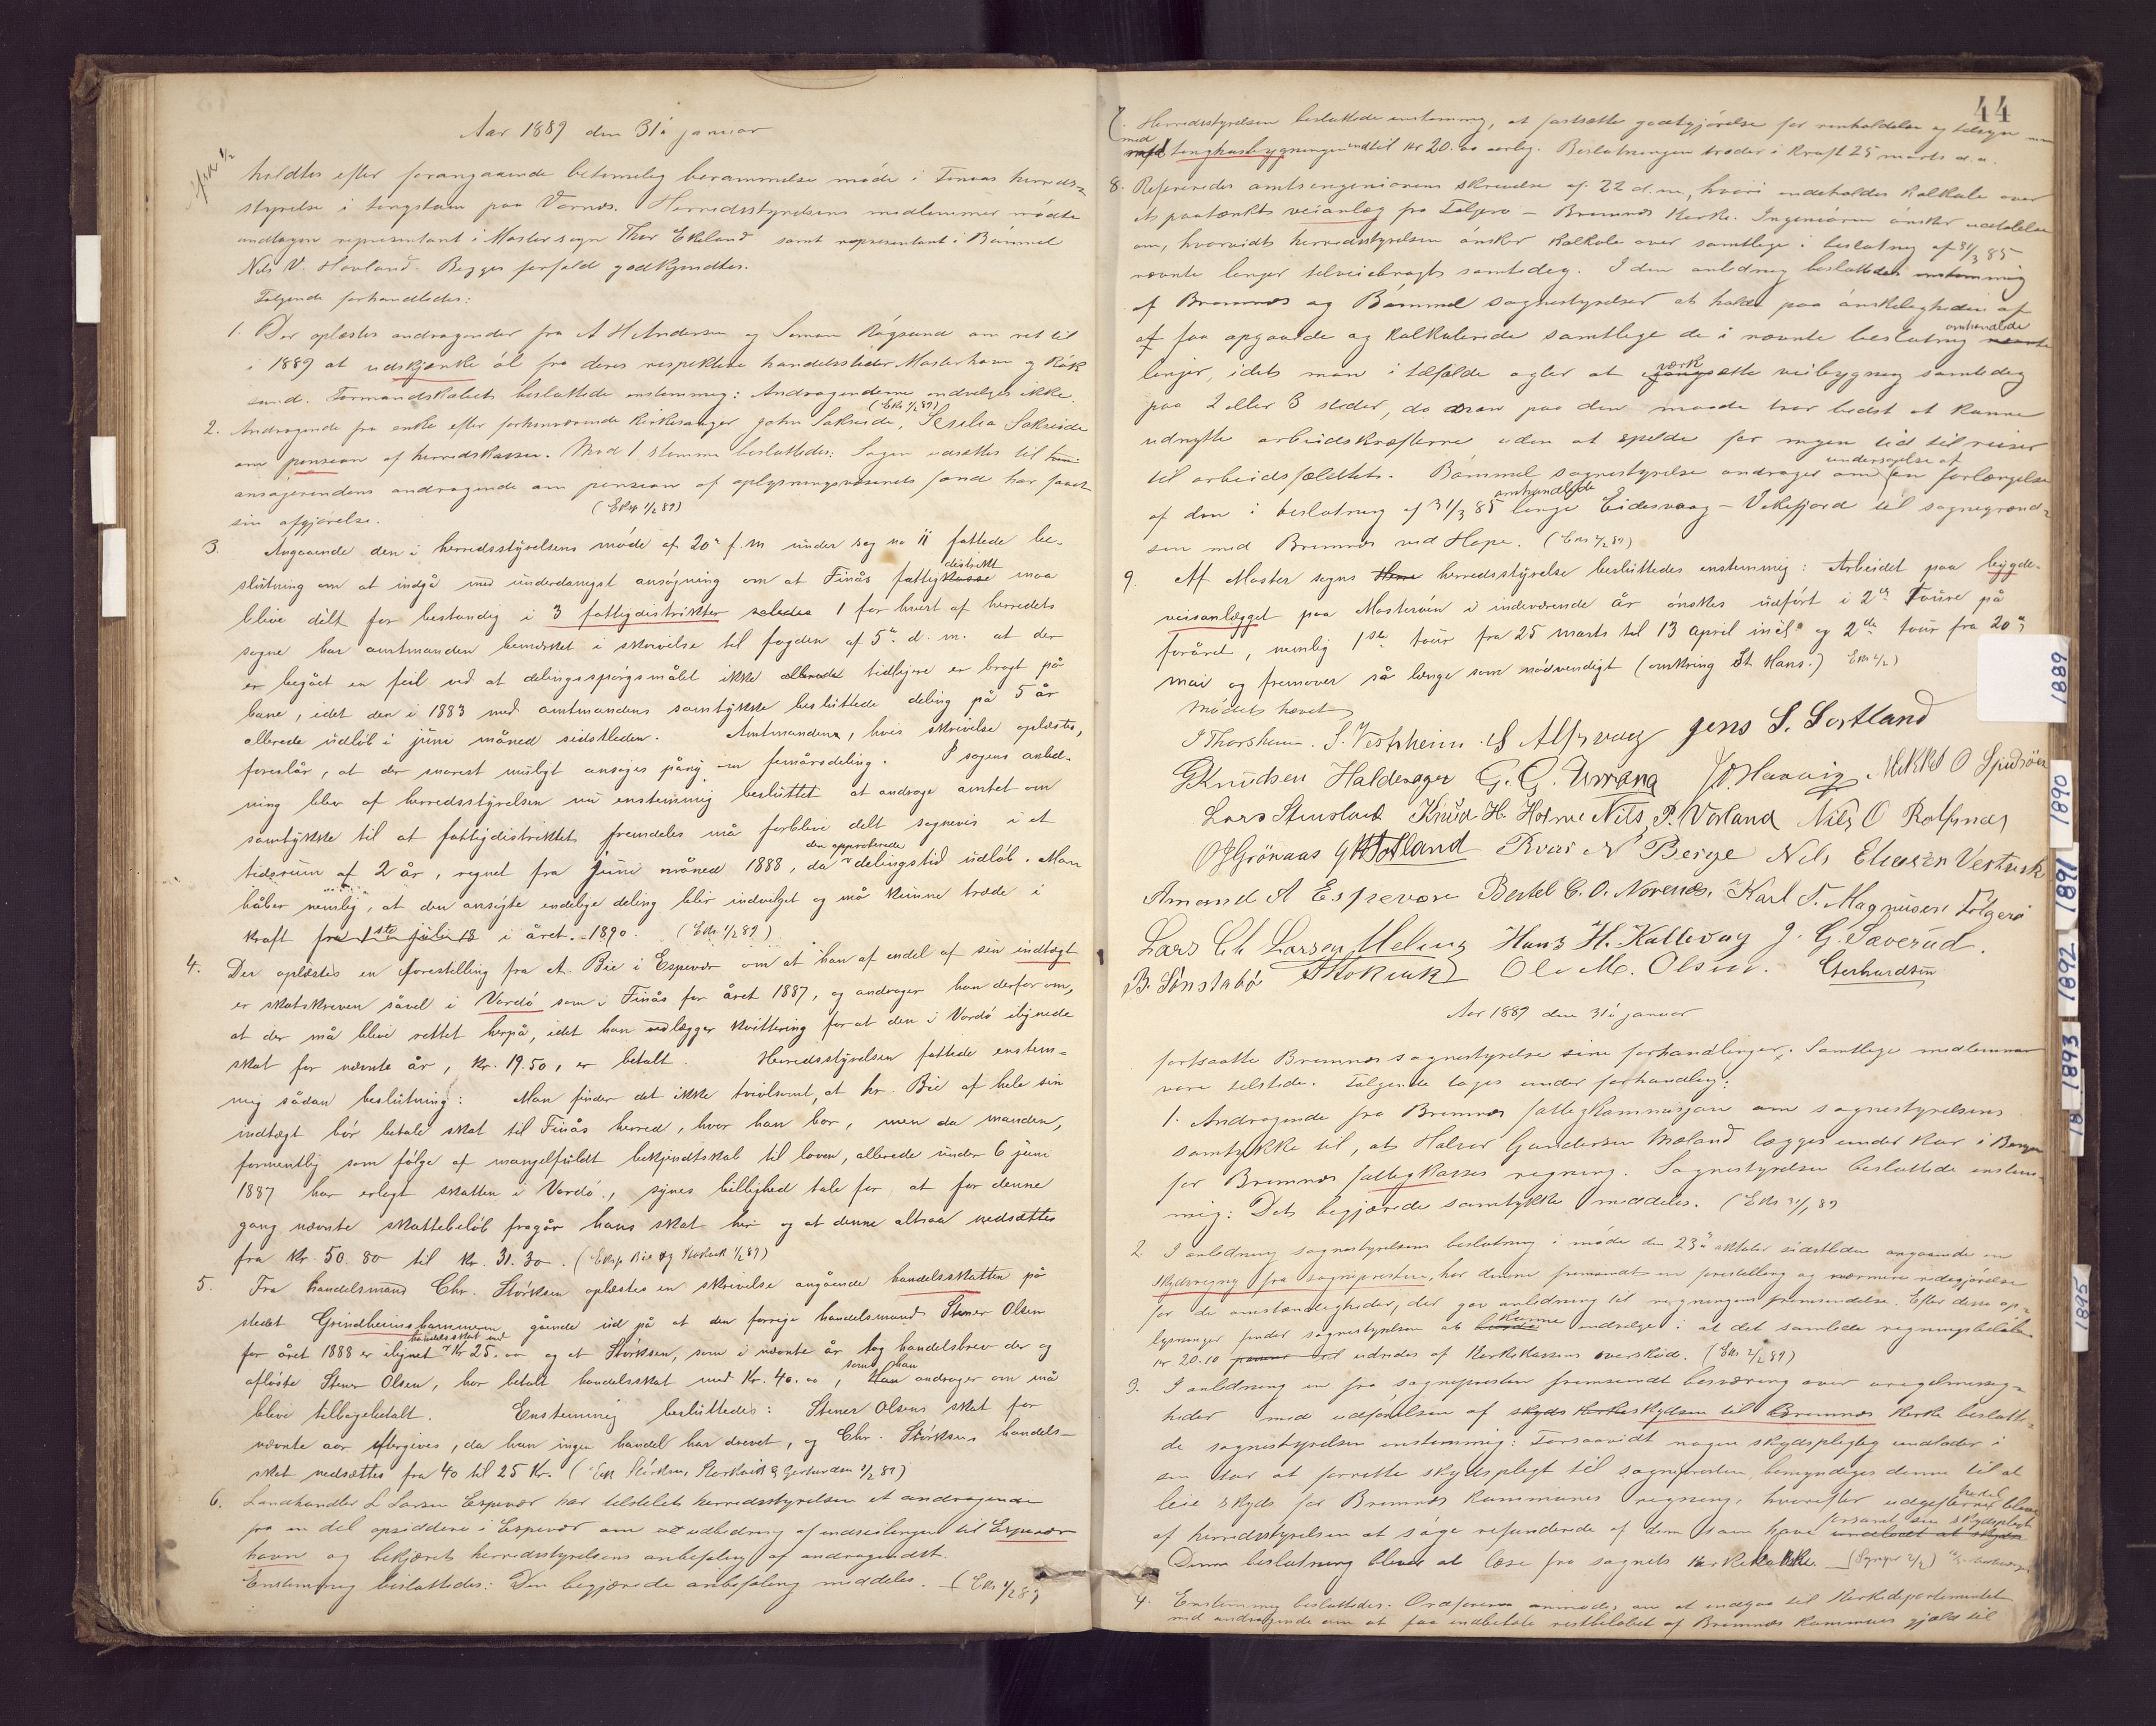 Aar 1889 den 31te januar
holdtes efter forangaaende betimelig berammelse møde i Finnas herreds-
styrelse i tingstuen paa Vornes. Herredsstyrelsens medlemmer mødte
undtagen repræsentant i Moster sogn Thor Ekeland samt repræsentant i Bømmel
Nils V. Hovland. Begges forfald godkjendtes.
Følgende forhandledes:
1. Der oplæstes andragender fra A H Andersen og Simon Røgsund om ret til
i 1889 at udskjænke øl fra deres respektive handelssteder Mosterhavn og Røk
sund. Formandskabet besluttede enstemmig: Andragenderne indvelges ikke.
(Eks 1/2 89)
2. Andragende fra enke efter forhenværende kirkesanger John Sakseide, Sesilia Sakseide
om pension af herredskassen. Mod 1 stemme besluttedes: Sagen udsættes til
ansøgerindens andragende om pension af oplysningsvæsenets fond har faaet
sin afgjørelse. (Eksp 1/2 89)
3. Angaaende den i herredsstyrelsens møde af 20de f. m under sag no 11 fattede be-
slutning om at indgå med underdanigst ansøgning om at Finås fattigkasse distrikt maa
blive delt for bestandig i 3 fattigdistrikter saledes 1 for hvert af herredets
sogne har amtmanden bemærket i skrivelse til fogden af 5te d. m. at der
er begået en feil ved at delingsspørgsmålet ikke allerede tidligere er bragt på
bane, idet den i 1883 med amtmandens samtykke besluttede deling på 5 år
allerede udløb i juni måned sidstleden. Amtmanden, hvis skrivelse oplæstes,
foreslår, at der snarest muligt ansøges påny om femårsdeling. I sagens anled-
ning blev af herredsstyrelsen nu enstemmig besluttet at andrage amtet om
samtykke til at fattigdistriktet fremdeles må forblive delt sognevis i et
tidsrum af 2 år, regnet fra juni måned 1888, da den approberede delingstid udløb. Man
håber nemlig, at den ansøgte endelige deling blir indvilget og må kunne træde i
kraft fra 1ste juli 18 i året 1890. (Eks. 1/2 89)
4. Der oplæstes en forestilling fra A. Bie i Espevær om at han af endel af sin indtægt
er skatskreven såvel i Vardø som i Finås for året 1887, og andrager han derfor om,
at der må blive rettet herpå, idet han vedlægger kvittering for at den i Vardø ilignede
skat for nævnte år, kr. 19.50, er betalt. Herredsstyrelsen fattede enstem-
mig sådan beslutning: Man finder det ikke tvivlsomt, at hr. Bie af hele sin
indtægt bør betale skat til Finås herred, hvor han bor, men da manden,
formentlig som følge af mangelfuldt bekjendtskab til loven, allerede under 6 juni
1887 har erlagt skatten i Vardø, synes billighed tale for at for denne
gang nævnte skattebeløb fragår hans skat her og at denne altsaa nedsættes
fra kr. 50.80 til kr. 31.30. (Eksp. Bie og Storkvik 1/2 89)
5. Fra handelsmand Chr. Størksen oplæstes en skrivelse angående handelsskatten på
stedet Grindheimshammeren gående ud på at den forrige handelsmand Stener Olsen
for året 1888 er ilignet handelsskat med kr 25.00 og at Størksen, som i nævnte år tog handelsbrev der og
afløste Stener Olsen, har betalt handelsskat med kr. 40.00, som han andrager om må
blive tilbagebetalt. Enstemmig besluttedes: Stener Olsens skat for
nævnte aar eftergives, da han ingen handel har drevet, og Chr. Størksens handels-
skat nedsættes fra 40 til 25 kr. (Eks Størksen, Storkvik & Gerhardsen 1/2 89)
6. Landhandler L Larsen Espevær har tilstelet herredsstyrelsen et andragende
fra en del opsiddere i Espevær om udbedring af indseilingen til Espevær
havn og bekjæret herredsstyrelsens anbefaling af andragendet.
Enstemmig besluttedes: Den begjærede anbefaling meddeles. (Eks 1/2 89)
44
7. Herredsstyrelsen besluttede enstemmig, at fastsætte godtgjørelse for renholdelse og tilsyn
med tinghusbygningen indtil kr 20.00 aarlig. Beslutningen træder i kraft 25 marts d. a.
8. Refereredes amtsingeniørens skrivelse af 22 d. m, hvori indeholdes kalkule over
et paatænkt veianlæg fra Følgerø – Bremnes kirke. Ingeniøren ønsker udtalelse
om, hvorvidt herredsstyrelsen ønsker kalkule over samtlige i beslutning af 31/3 85
nævnte linjer tilveiebragt samtidig. I den anledning besluttedes enstemmig
af Bremnes og Bømmel sognestyrelser at holde paa ønskeligheden af
at faa opgaaede og kalkulerede samtlige de i nævnte beslutning omhandlede
linjer, idet man i tilfælde agter at iværksætte veibygning samtidig
paa 2 eller 3 steder, da man paa den maade tror bedst at kunne
udnytte arbeidskræfterne uden at spilde for megen tid til reiser
til arbeidsfældtet. Bømmel sognestyrelse andrager om undersøgelse af en forlængelse
af den i beslutning af 31/3 85 omhandlede linje Eidesvaag – Vikefjord til sognegrænd-
sen med Bremnes ved Hope. (Eks 2/2 89)
9. Af Moster sogns herredsstyrelse besluttedes enstemmig: Arbeidet paa bygde-
veisanlægget paa Mosterøen i indeværende år ønskes udført i 2de Toure på
foråret, nemlig 1ste tour fra 25 marts til 13 april incl. og 2den tour fra 20de
mai og fremover så længe som nødvendigt (omkring St Hans.) Eks 2/2)
Mødet hævet
J Thorsheim. S. Vestheim. S Alsvaag Jens S. Sortland
G Knudsen Halderager G. G. Urrang J. Havvig Mikkel O Spidsøen
Lars Stensland Knud H. Holme Nils P. Vorland Nils O Rolfsnes
O J Grønaas G H Totland Roar N Berge Nils Eliasen Vestvik
Amand A Espevær Bertel C. O. Norenes. Karl T. Magnusen Følgerø
Lars Ch Larsen Meling Hans H. Kallevag J. G. Sæverud.
B. Sønstabø A Stokvik Ole M. Olsen. Gerhardsen
Aar 1889 den 31te januar
fortsaatte Bremnes sognestyrelse sine forhandlinger. Samtlige medlemmer
vare tilstede. Følgende toges under forhandling:
1. Andragende fra Bremnes fattigkommisjon om sognestyrelsens
samtykke til, at Halvor Gundersen Mæland lægges under kur i Bergen
for Bremnes fattigkasses regning. Sognestyrelsen besluttede enstem-
mig: Det begjærede samtykke meddeles. (Eks 31/1 89
2. I anledning sognestyrelsens beslutning i møde den 23de oktober sidstleden angaaende en
skydsregning fra sognepresten, har denne fremsendt en forestilling og nærmere redegjørelse
for de omstændigheder, der gav anledning til regningens fremsendelse. Efter disse op-
lysninger finder sognestyrelsen at kunne indvelge i at det samlede regningsbeløb
kr 20.10 udredes af Kirkekassens overskud. (Eks 2/2 89)
3. I anledning en fra sognepresten fremsendt besværing over uregelmessig-
heder med udførelsen af skyds kirkeskydsen til Bremnes kirke beslutte-
de sognestyrelsen enstemmig: Forsaavidt nogen skydspligtig undlader i
sin tur at forrette skydspligt til sognepresten, bemyndiges denne til at
leie skyds for Bremnes kommunes regning, hvorefter udgifterne herved blive
af herredsstyrelsen at søge refunderede af dem som have forsømt sin skydspligt
Denne beslutning bliver at læse fra sognets kirkebakke. (Sognepr 2/2)
4. Enstemmig besluttedes: Ordføreren anmodes om at indgaa til Kirkedepartementet
med andragende om at faa indbetale restbeløbet af Bremnes kommunes gjæld til
1889
1890
1891
1892
1893
18
1895